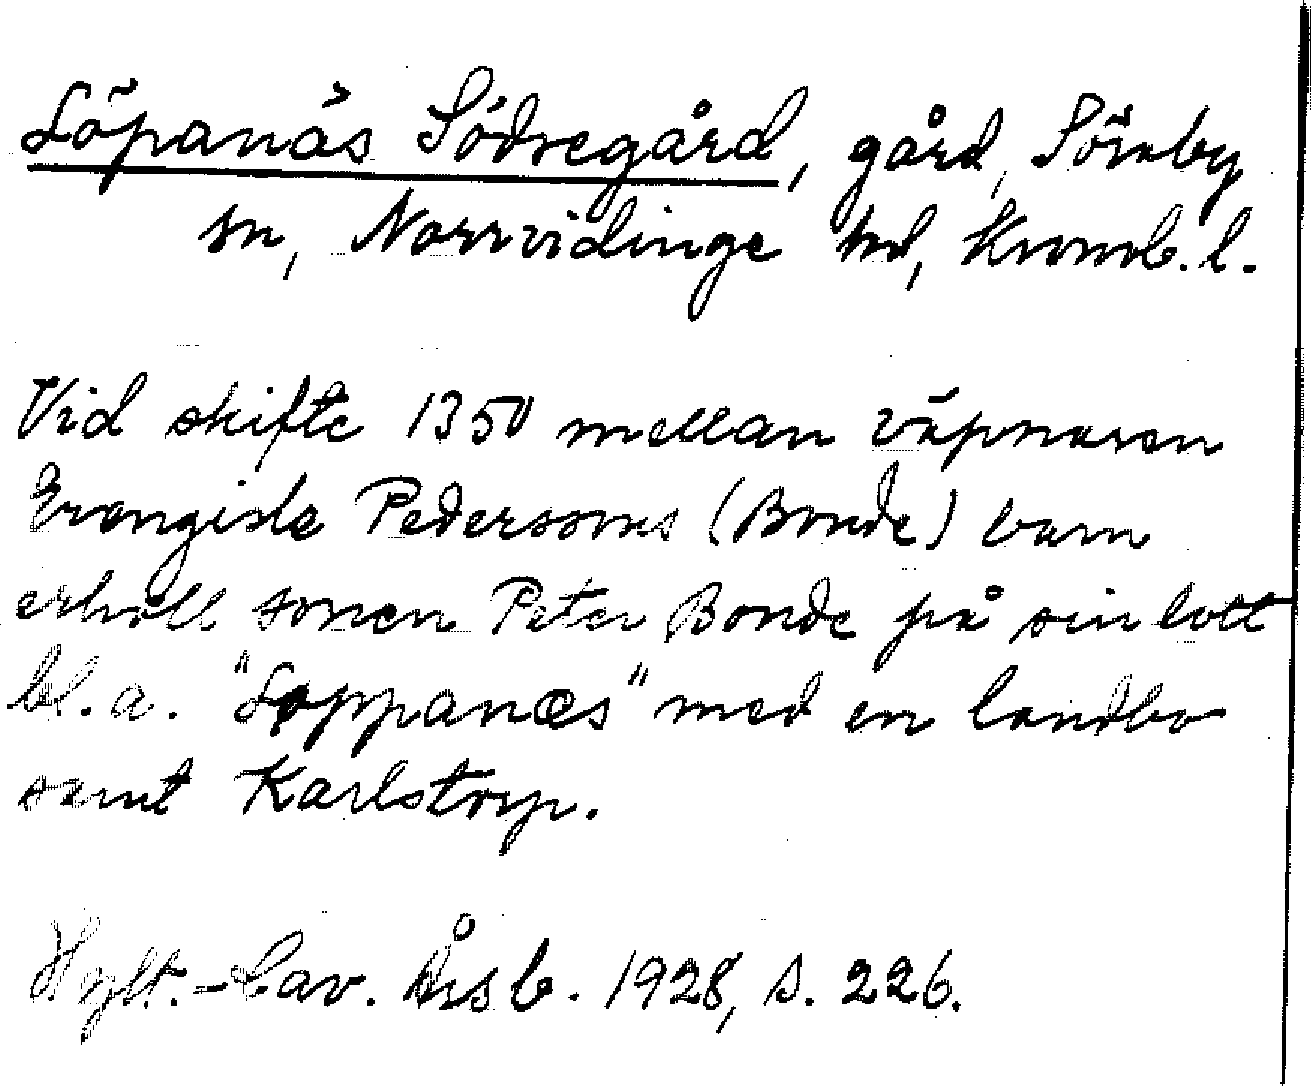 Löpanäs Södregård, gård, Söraby
sn, Norrvidinge hd, Kronob. l.
Vid skifte 1350 mellan väpnaren
Erengisle Pedersons (Bonde) barn
erhöll sonen Peter Bonde på sin lott
bl.a. "Loppanæs" med en landbo
samt Karlstorp.
Hylt.-Cav. Årsb. 1928, s. 226.